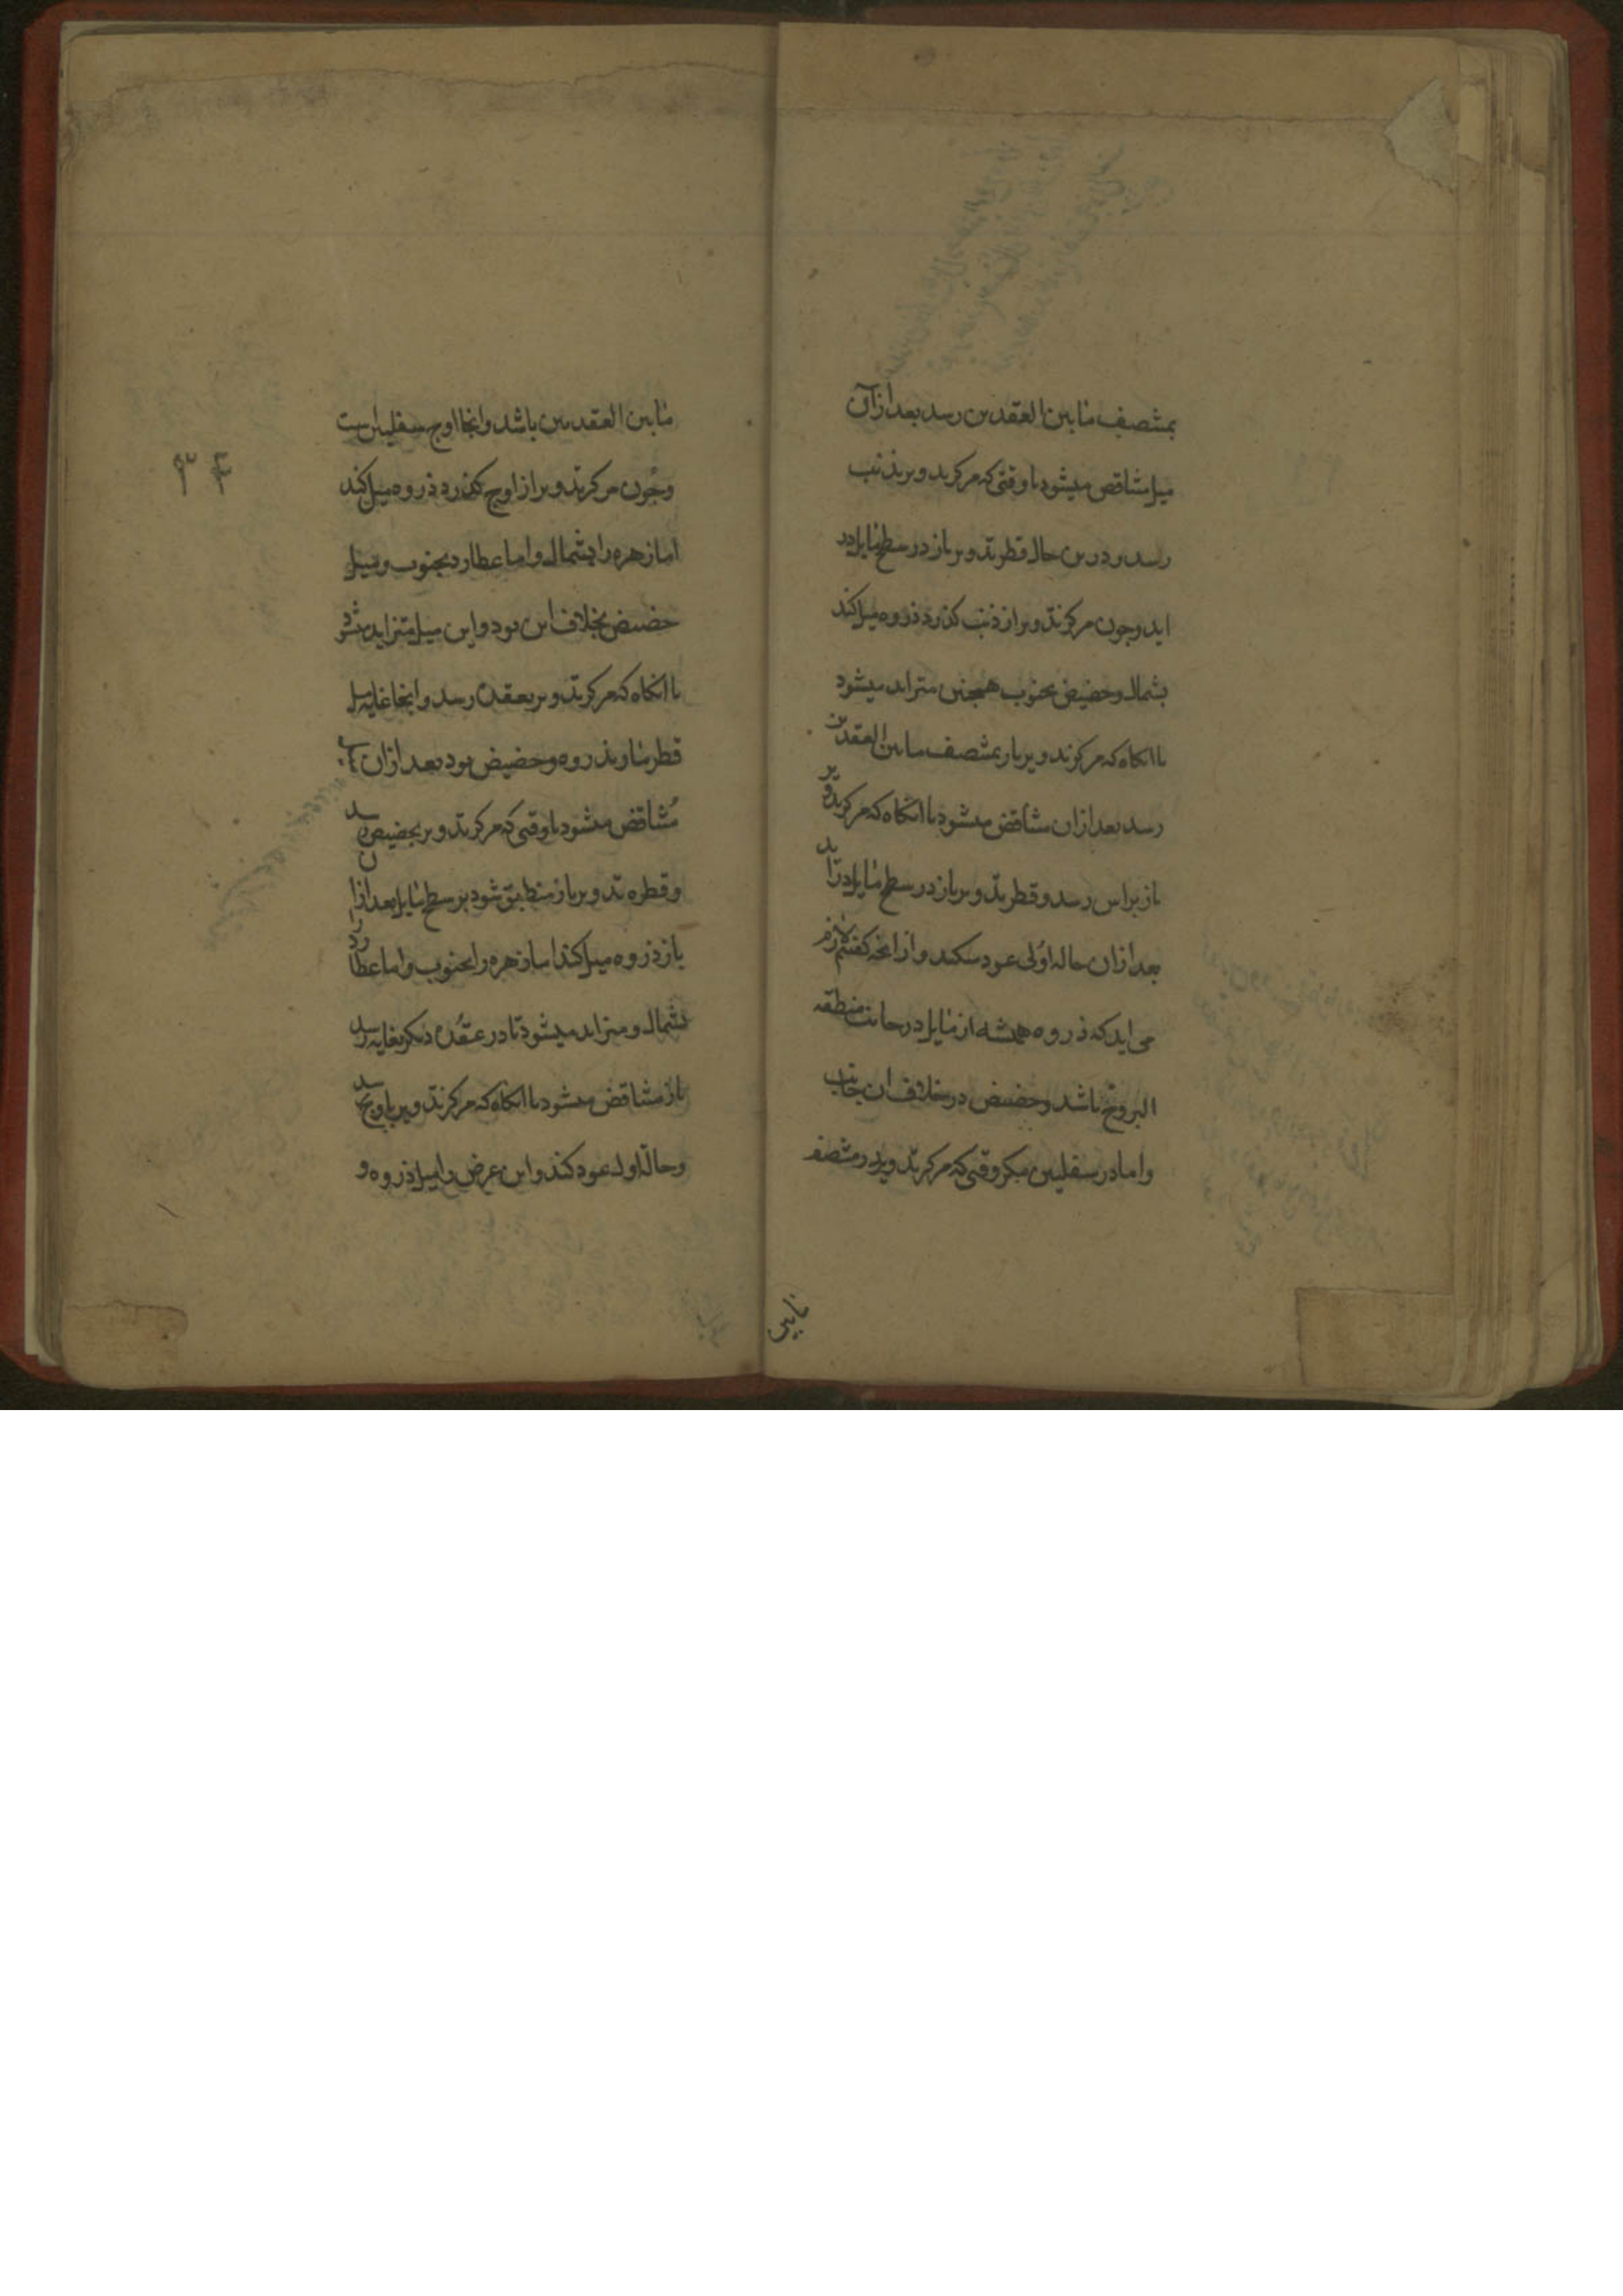 بمنتصف مابین العقدین رسد بعد از آن
میل متناقص میشود تا وقتی که مرکز تدویر بذنب
رسد و درین حال قطر تدویر باز در سطح مایل در
اید و چون مرکز تدویر از ذنب کذرد ذروه میل کند
بشمال و حضیض بجنوب همچنین متزاید میشود
تا انکاه که مرکز تدویر باز بمنتصف مابین العقدین
رسد بعد ازان متناقض میشود تا انکاه که مرکز تدویر
باز براس رسد و قطر تدویر باز در سطح مایل در اید
بعد ازان حاله اولی عود میکند و از انجه کفتیم لازم
می اید که ذروه همیشه از مایل در جانب منطقه
البروج باشد و حضیض در خلاف ان جانب
و اما در سفلیین میکر وقتی که مرکز تدویر در منتصف
مابین
۳۴
مابین العقدین باشد و انجا اوج سفلیین است
و چون مرکز تدویر از اوج کذرد ذروه میل کند
اما زهره را بشمال و اما عطارد بجنوب و میل
حضیض بخلاف این بود و این میل متزاید میشود
تا انکاه که مرکز تدویر بعقدن رسد و اینجا غایه میل
قطر مار بذروه و حضیض بود بعد ازان
متناقض میشود تا وقتی که مرکز تدویر بحضیض رسد
و قطره تدویر باز منطبق شود بر سطح مایل بعد ازان
باز ذروه میل کند اما زهره را بجنوب و اما عطارد
بشمال و متزاید میشود تا در عقدن دیکر بغایه رسد
باز متناقض میشود تا انکاه که مرکز تدویر باوج رسد
و حاله اول عود کند و این عرض را میل ذروه و